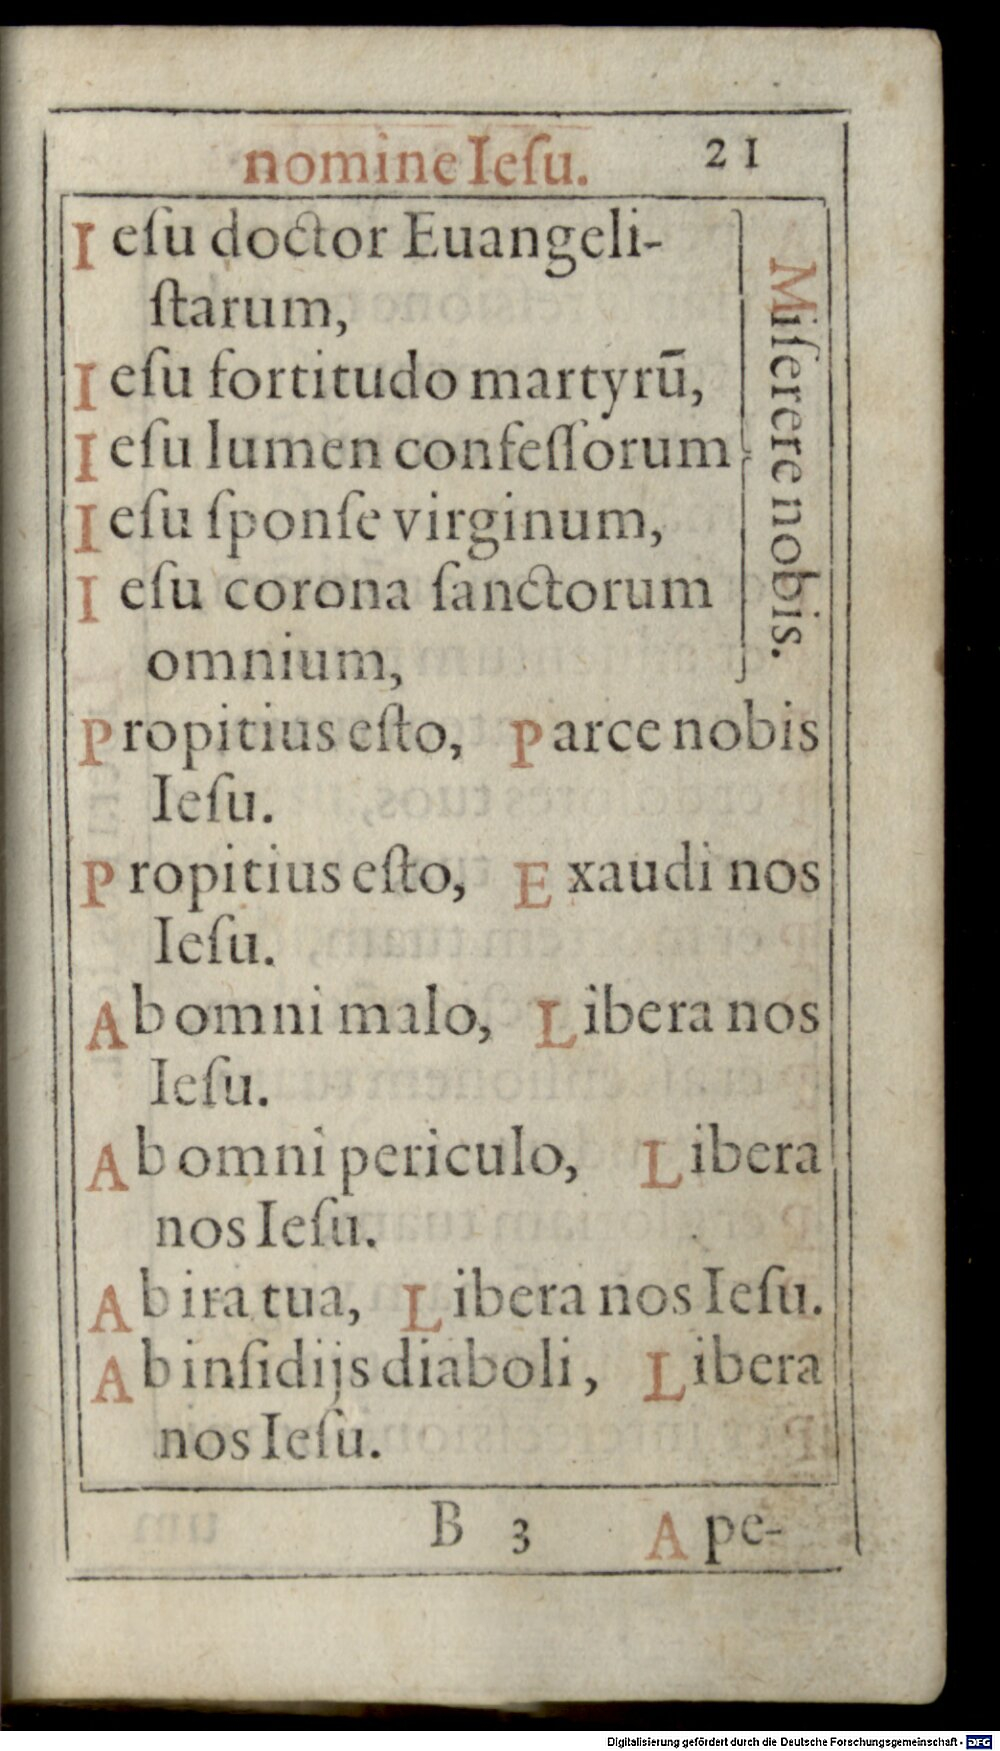 nomine Ieſu. 21
Ieſu doctor Euangeli-
ſtarum,
Ieſu fortitudo martyrū,
Ieſu lumen confeſſorum
Ieſu ſponſe virginum,
Ieſu corona ſanctorum
omnium,
Miſerere nobis.
Propitius eſto, Parce nobis
Ieſu.
Propitius eſto, Exaudi nos
Ieſu.
Ab omni malo, Libera nos
Ieſu.
Ab omni periculo, Libera
nos Ieſu.
Ab ira tua, Libera nos Ieſu.
Ab inſidijs diaboli, Libera
nos Ieſu.
B 3 A pe-
Digitalisierung gefördert durch die Deutsche Forschungsgemeinschaft - DFG